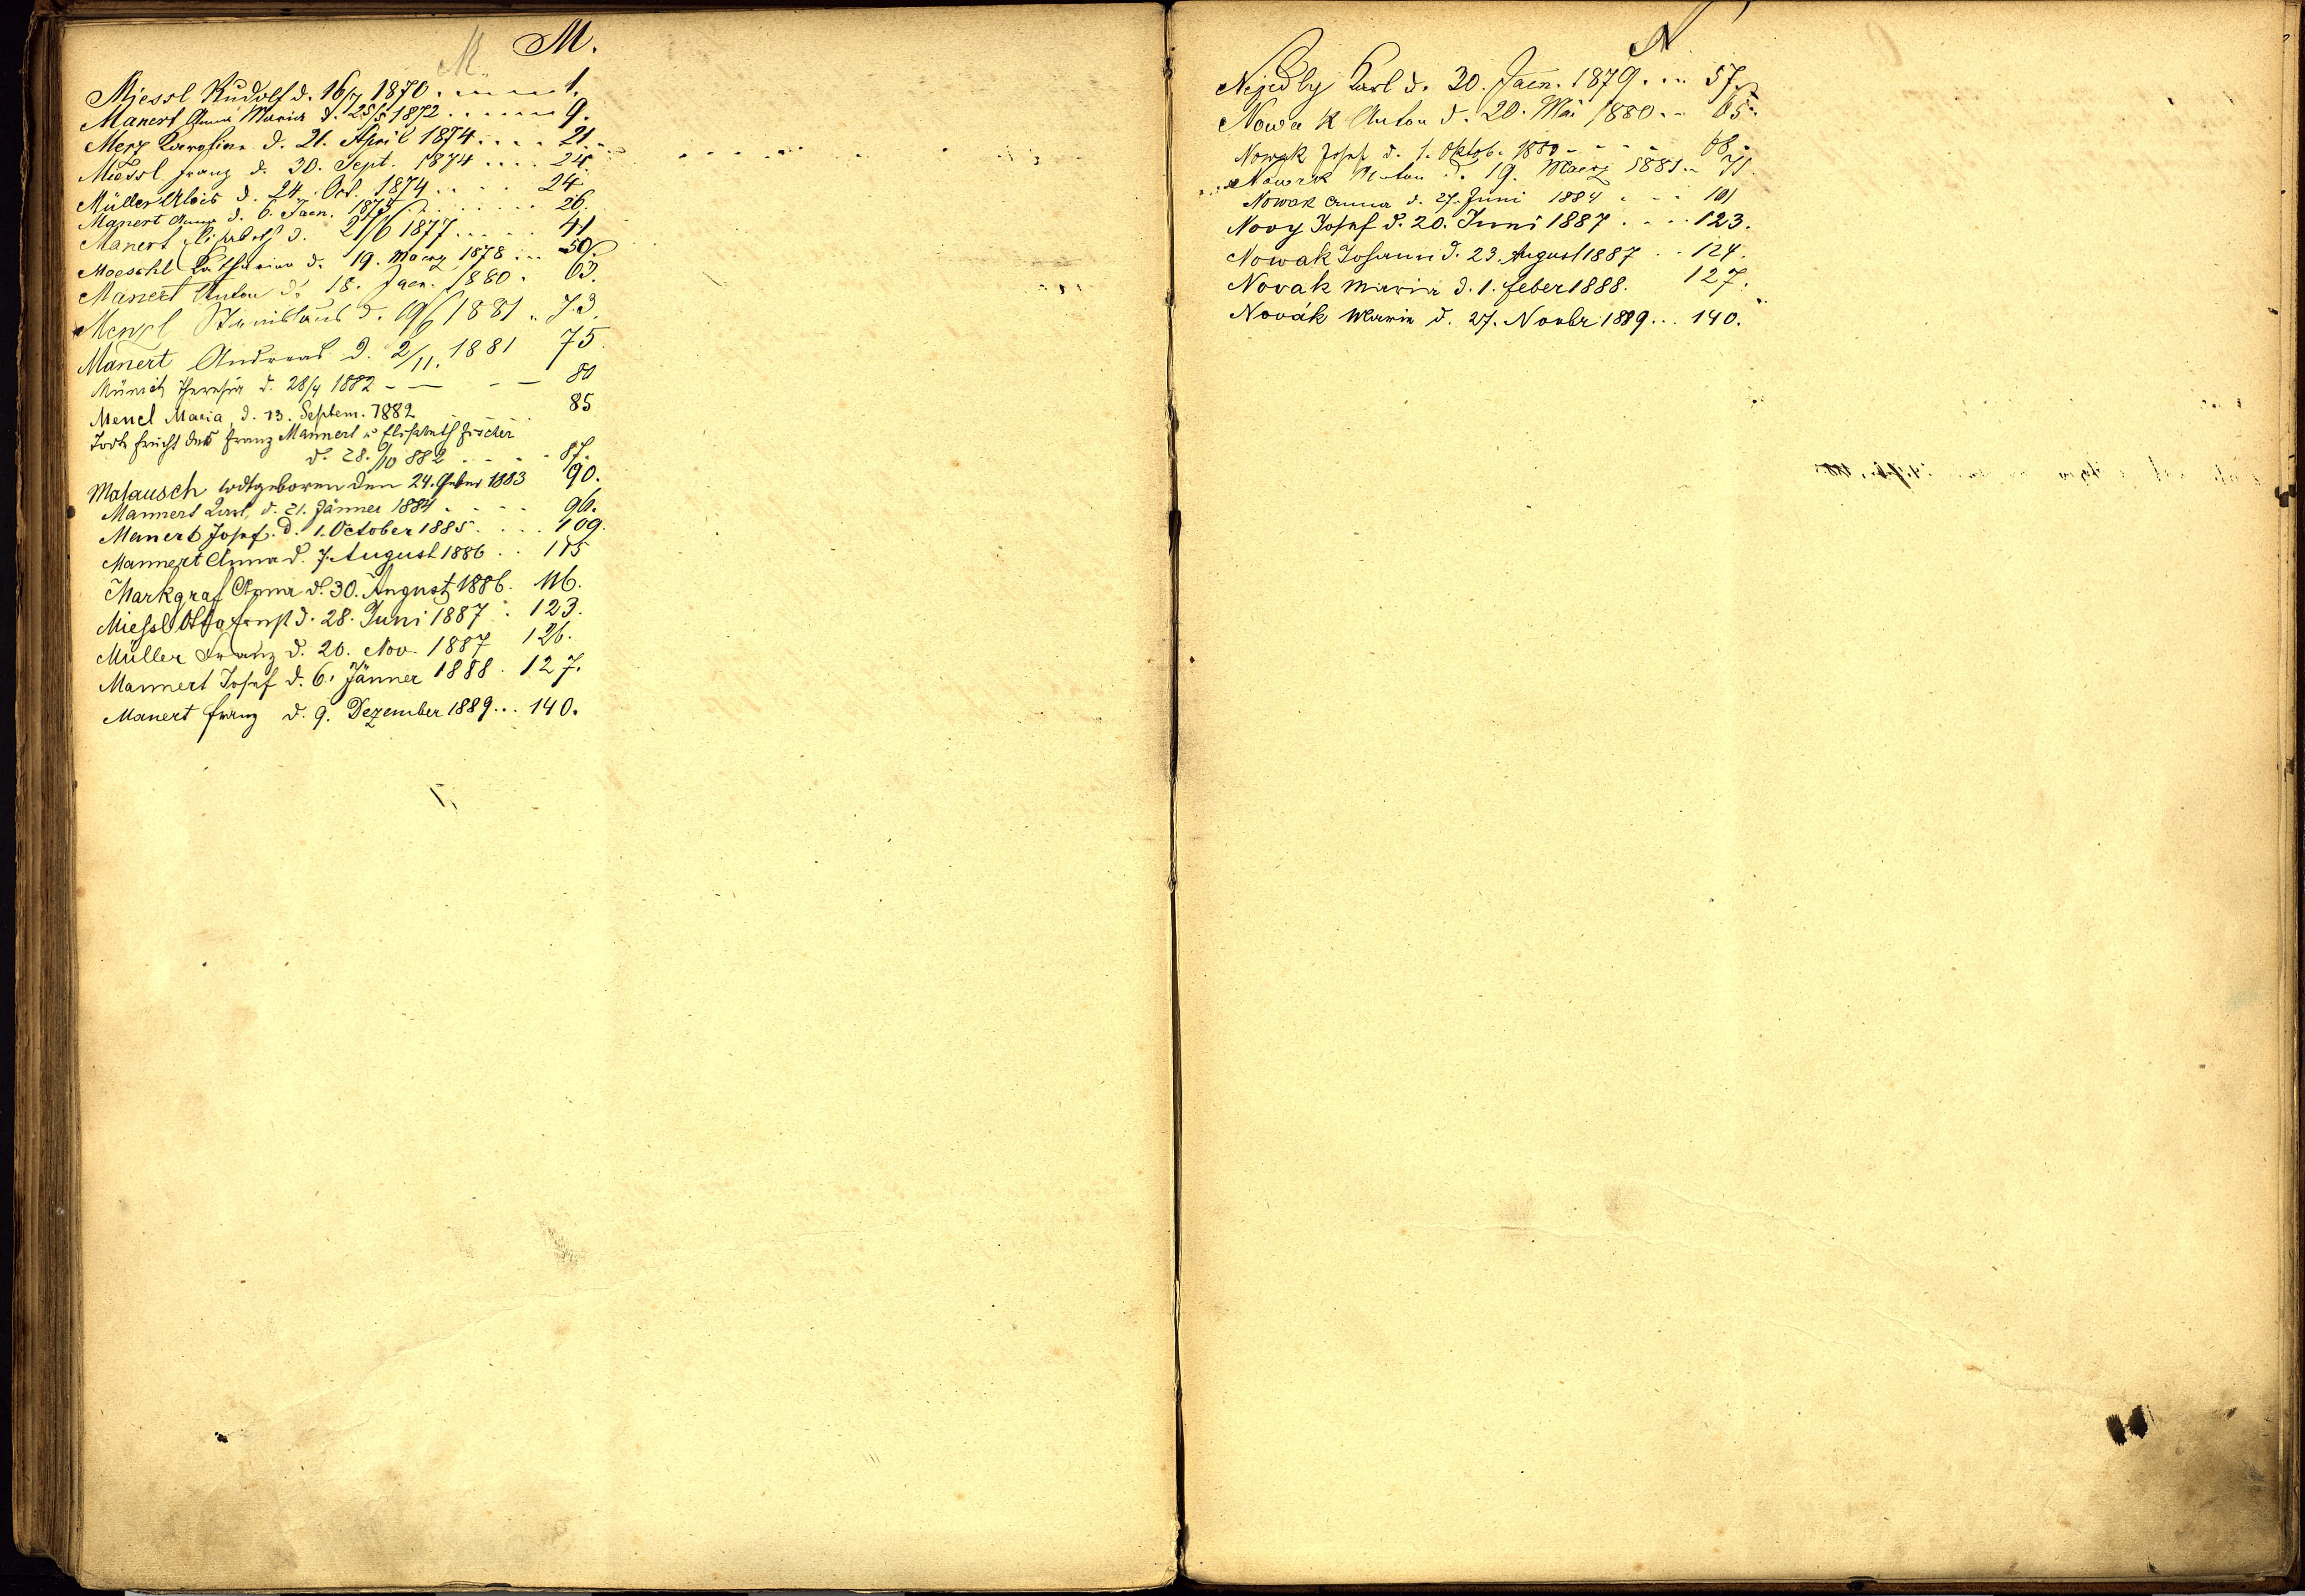 M. M.
Miessl Rudolf d. 16/7 1870 . . . . 1.
Manert Anna Maria d. 25/5 1872 . . . . . . 9.
Merz d. 21. April 1874 . . . . 21.
Miessl Franz d. 30. Sept. 1874 . . . . 24.
Müller Alois d. 24. Oct. 1874 . . . . 24
Manert Anna d. 6. Jaen. 1875 . . . . . . . 26.
Manert Elisabeth d. 21/6 1877 . . . . . 41
Moeschl Katharina d. 19. Maerz 1878 . . . 50.
Manert Anton d. 18. Jaen. 1880 . 63.
Menzl Stanislaus d. 19/6 1881 . . 73.
Manert Andreas d. 2/11. 1881 75.
Münich Theresia d. 28/4 1882 - — - — 80
Mencl Maria d. 13. Septem. 1882 . . . . 85
Franz Mannert u Elisabeth Fischer
d. 28./10 882 . . . . 87.
Matausch todtgeboren den 24. Feber 1883 90.
Mannert Karl, d. 21. Jänner 1884 . . . . 96.
Manert Josef. d. 1. October 1885 . . . . 109.
Mannert Anna d. 7. August 1886 . . 115
Markgraf Anna d. 30. August 1886. 116.
Miessl Otto Ernst d. 28. Juni 1887 . 123.
Müller Franz d. 20. Nov. 1887 126.
Mannert Josef d. 6. Jänner 1888 . 127.
Manert Franz d. 9. Dezember 1889 . . . 140.
N
Nejedly Karl d. 30. Jaen. 1879 . . . 57.
Nowak Anton d. 20. Mai 1880 . . 65.
Nowak Josef d. 1. Oktob. 1880 - - - - 68.
Nowak Anton d. 19. Maerz 1881 . . 71.
Nowak Anna d. 27. Juni 1884 . - - 101
Novy Josef d. 20. Juni 1887 . . . . 123.
Nowak Johann d. 23. August 1887 . . 124.
Novak Maria d. 1. Feber 1888. 127.
Novák Maria d. 27. Novbr 1889 . . . 140.